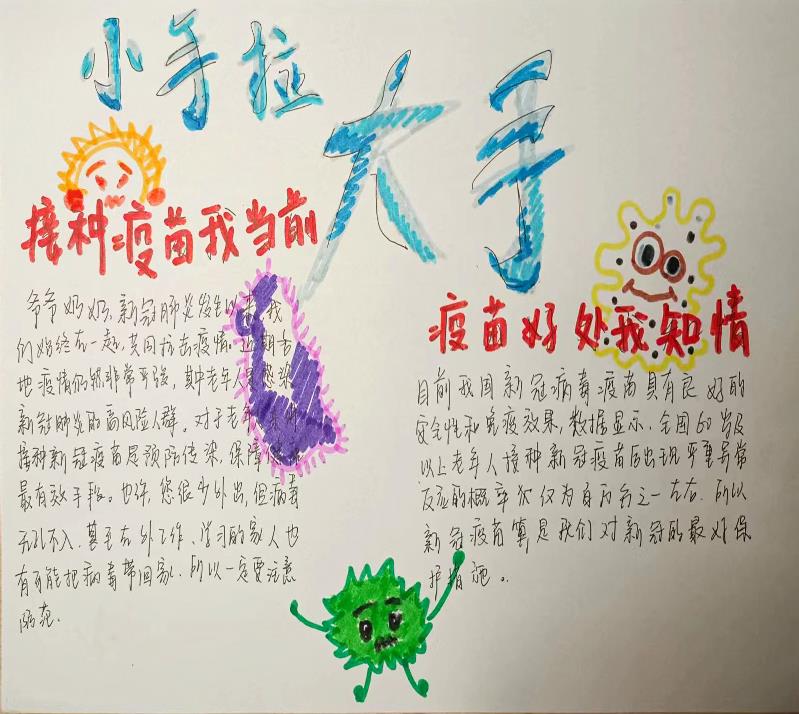 小手拉
大手
接种疫苗我当前
爷爷奶奶,新冠肺炎发生以来,我
们始终在一起,共同抗击疫情。近期当
地疫情仍然非常严峻,其中老年人是感染
新冠肺炎的高风险人群。对于老年
接种新冠疫苗是预防传染,保障
最有效手段。也许,您很少外出,但病毒
无孔不入,甚至在外工作、学习的家人也
有可能把病毒带回家,所以一定要注意
防范。
疫苗好处我知情
目前我国新冠病毒疫苗具有良好的
安全性和免疫效果,数据显示,全国60岁及
以上老年人接种新冠疫苗后出现严重异常
反应的概率仅仅为百万分之一左右,所以
新冠疫苗算是我们对新冠的最好保
护措施。